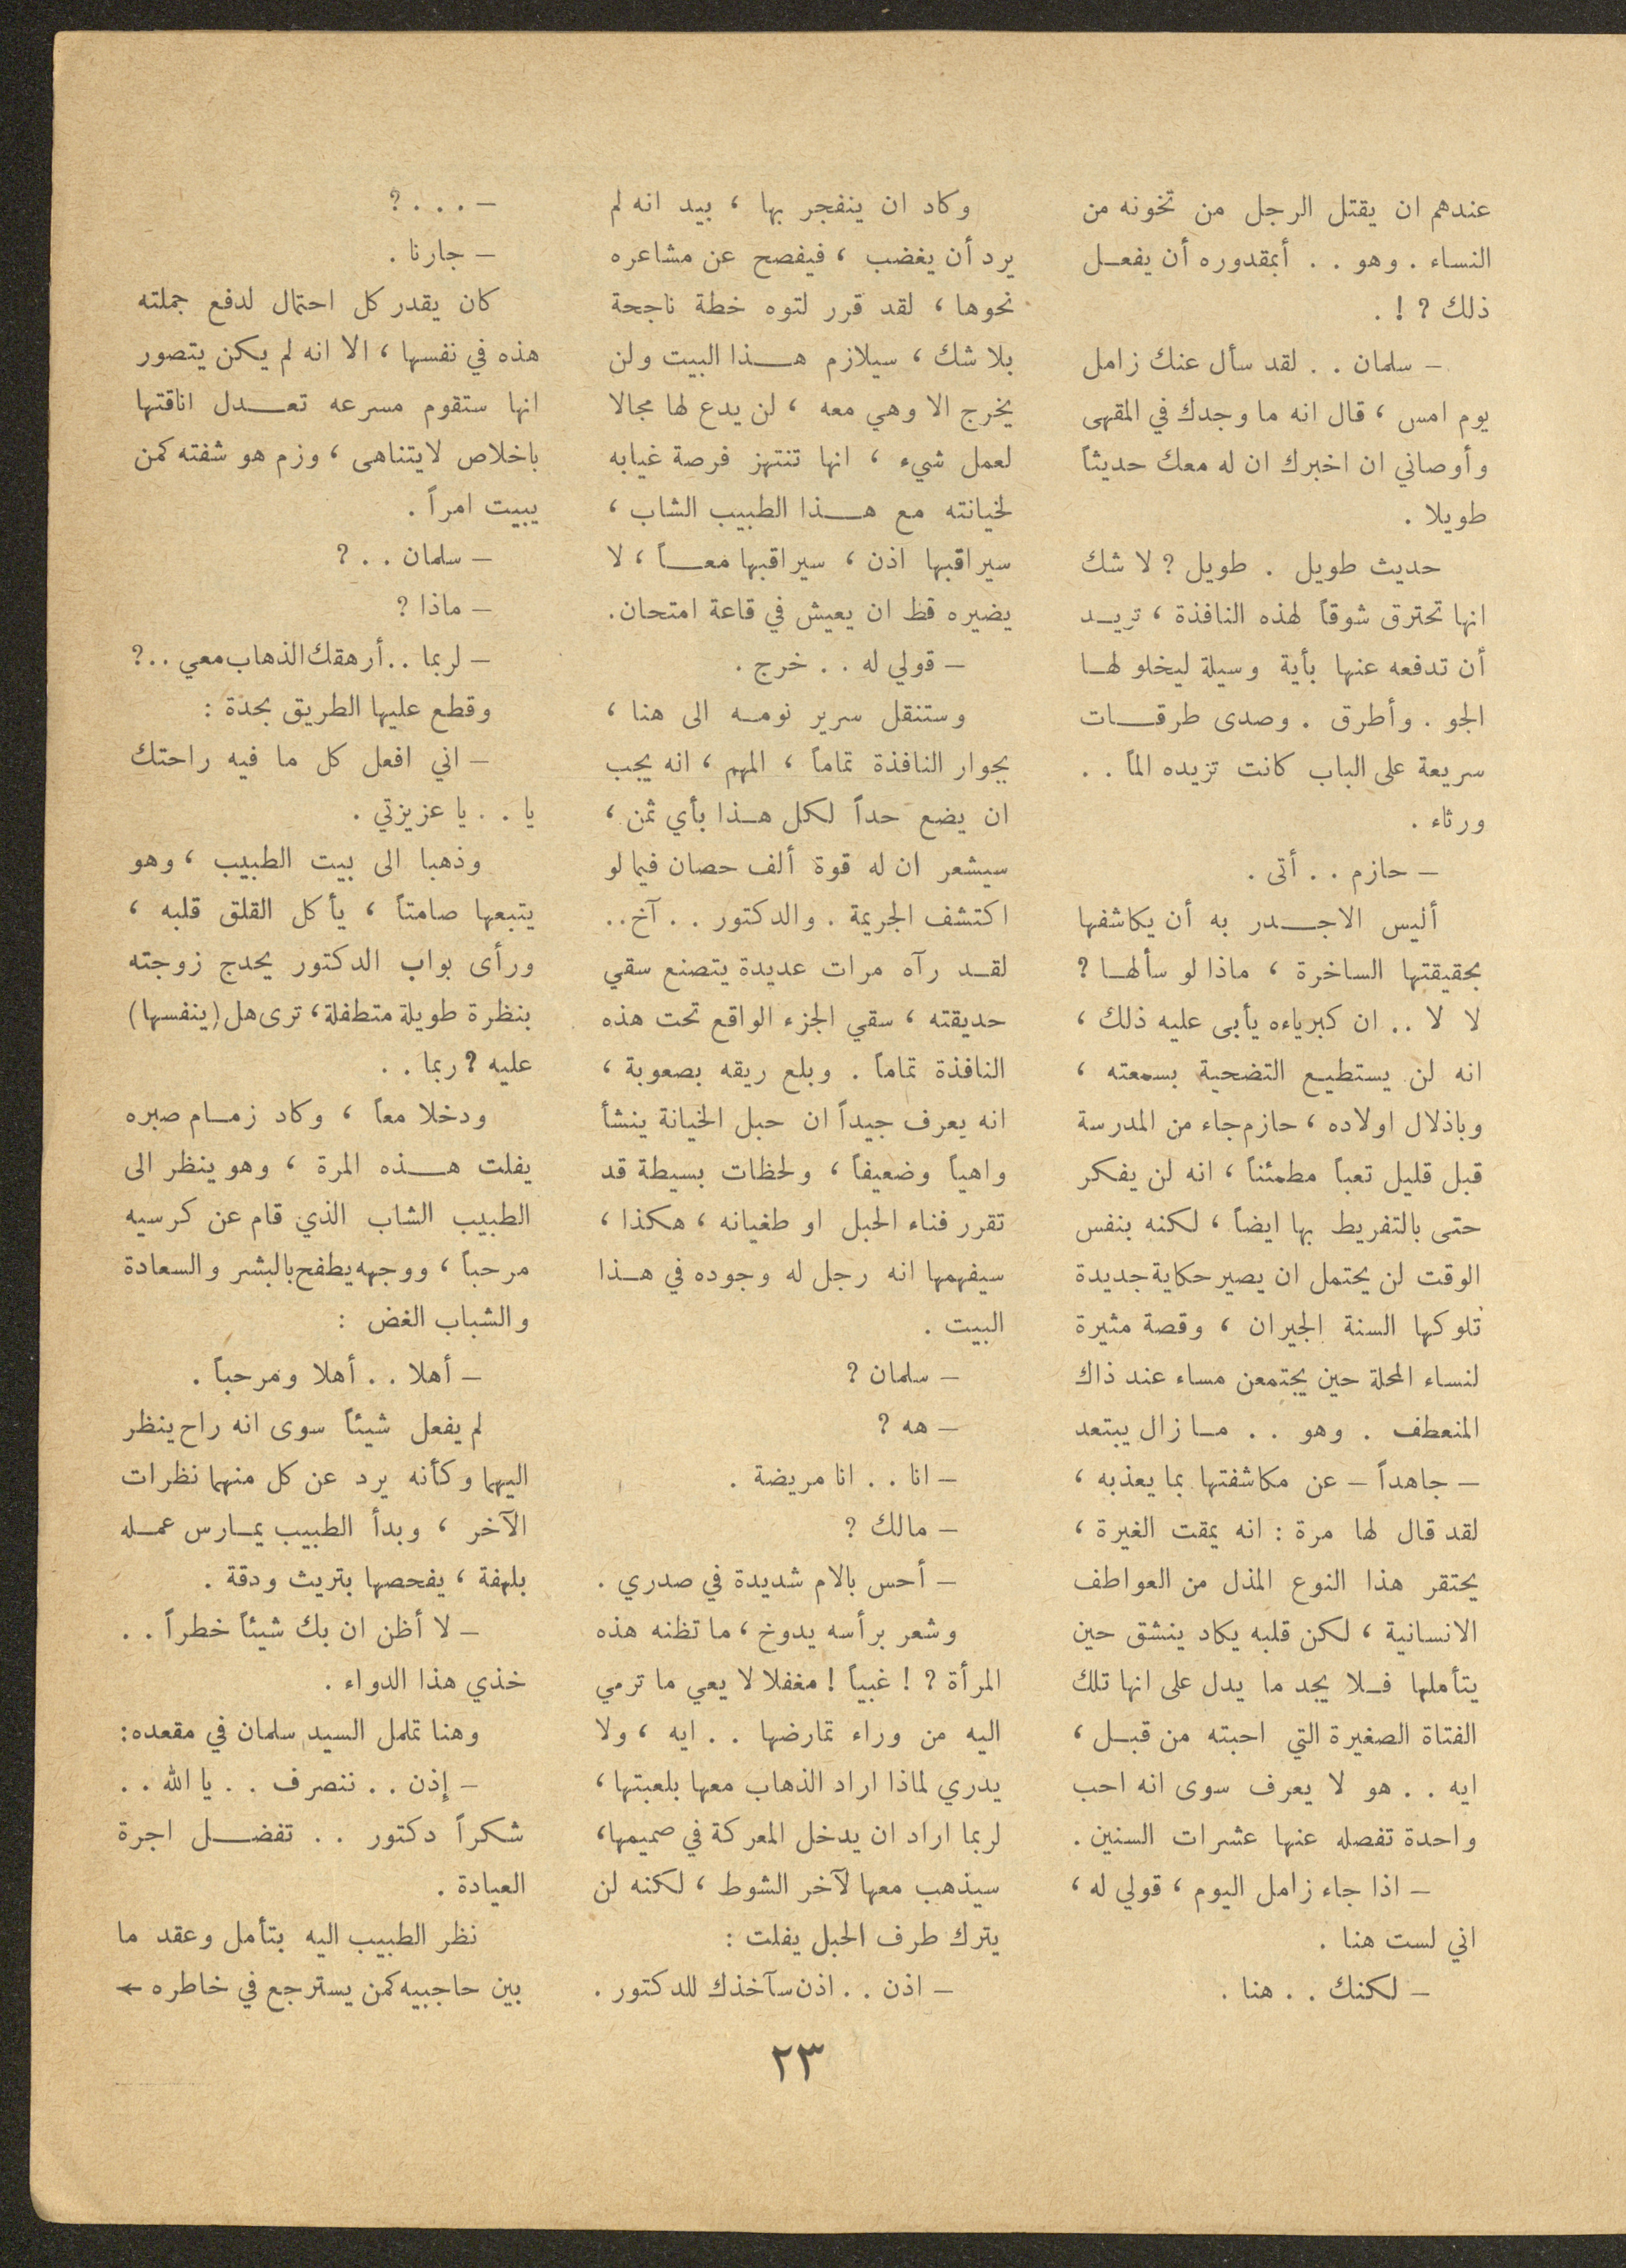 عندهم ان يقتل الرجل من تخونه من
النساء . وهو . . أبمقدوره أن يفعل
ذلك ? ! .
– سلمان . . لقد سأل عنك زامل
يوم امس ، قال انه ما وجدك في المقهى
وأوصاني ان اخبرك ان له معك حديثاً
طويلا .
حديث طويل . طويل ? لا شك
انها تحترق شوقاً لهذه النافذة ، تريد
أن تدفعه عنها بأية وسيلة ليخلو لها
الجو . وأطرق . وصدى طرقات
سريعة على الباب كانت تزيده الماً . .
ورثاء .
– حازم . . أتى .
أليس الاجدر به أن يكاشفها
بحقيقتها الساخرة ، ماذا لو سألها ?
لا لا .. ان كبرياءه يأبى عليه ذلك ،
انه لن يستطيع التضحية بسمعته ،
وباذلال اولاده ، حازم جاء من المدرسة
قبل قليل تعباً مطمئناً ، انه لن يفكر
حتى بالتفريط بها ايضاً ، لكنه بنفس
الوقت لن يحتمل ان يصير حكاية جديدة
تلوكها السنة الجيران ، وقصة مثيرة
لنساء المحلة حين يجتمعن مساء عند ذاك
المنعطف . وهو . . مازال يبتعد
– جاهداً – عن مكاشفتها بما يعذبه ،
لقد قال لها مرة : انه يمقت الغيرة ،
يحتقر هذا النوع المذل من العواطف
الانسانية ، لكن قلبه يكاد ينشق حين
يتأملها فلا يجد ما يدل على انها تلك
الفتاة الصغيرة التي احبته من قبل ،
ايه . . هو لا يعرف سوى انه احب
واحدة تفصله عنها عشرات السنين .
– اذا جاء زامل اليوم ، قولي له ،
اني لست هنا .
– لكنك . . هنا .
وكاد ان ينفجر بها ، بيد انه لم
يرد أن يغضب ، فيفصح عن مشاعره
نحوها ، لقد قرر لتوه خطة ناجحة
بلا شك ، سيلازم هذا البيت ولن
يخرج الا وهي معه ، لن يدع لها مجالا
لعمل شيء ، انها تنتهز فرصة غيابه
لخيانته مع هذا الطبيب الشاب ،
سيراقبها اذن ، سيراقبها معاً ، لا
يضيره قط ان يعيش في قاعة امتحان .
– قولي له . . خرج .
وستنقل سرير نومه الى هنا ،
بجوار النافذة تماماً ، المهم ، انه يجب
ان يضع حداً لكل هذا بأي ثمن ،
سيشعر ان له قوة ألف حصان فيما لو
اكتشف الجريمة . والدكتور . . آخ ..
لقد رآه مرات عديدة يتصنع سقي
حديقته ، سقي الجزء الواقع تحت هذه
النافذة تماماً . وبلع ريقه بصعوبة ،
انه يعرف جيداً ان حبل الخيانة ينشأ
واهياً وضعيفاً ، ولحظات بسيطة قد
تقرر فناء الحبل او طغيانه ، هكذا ،
سيفهمها انه رجل له وجوده في هذا
البيت .
– سلمان ?
– هه ?
– انا . . انا مريضة .
– مالك ?
– أحس بالام شديدة في صدري .
وشعر برأسه يدوخ ، ما تظنه هذه
المرأة ? ! غبياً ! مغفلا لا يعي ما ترمي
اليه من وراء تمارضها . . ايه ، ولا
يدري لماذا اراد الذهاب معها بلعبتها ،
لربما اراد ان يدخل المعركة في صميمها ،
سيذهب معها لآخر الشوط ، لكنه لن
يترك طرف الحبل يفلت :
– اذن . . اذن سآخذك للدكتور .
– . . . ?
– جارنا .
كان يقدر كل احتمال لدفع جملته
هذه في نفسها ، الا انه لم يكن يتصور
انها ستقوم مسرعه تعدل اناقتها
باخلاص لايتناهى ، وزم هو شفته كمن
يبيت امراً .
– سلمان . . ?
– ماذا ?
– لربما .. أرهقك الذهاب معي .. ?
وقطع عليها الطريق بحدة :
– اني افعل كل ما فيه راحتك
يا . . يا عزيزتي .
وذهبا الى بيت الطبيب ، وهو
يتبعها صامتاً ، يأكل القلق قلبه ،
ورأى بواب الدكتور يحدج زوجته
بنظرة طويلة متطفلة ، ترى هل (ينفسها)
عليه ? ربما . .
ودخلا معاً ، وكاد زمام صبره
يفلت هذه المرة ، وهو ينظر الى
الطبيب الشاب الذي قام عن كرسيه
مرحباً ، ووجهه يطفح بالبشر والسعادة
والشباب الغض :
– أهلا . . أهلا ومرحباً .
لم يفعل شيئاً سوى انه راح ينظر
اليهما وكأنه يرد عن كل منهما نظرات
الآخر ، وبدأ الطبيب يمارس عمله
بلهفة ، يفحصها بتريث ودقة .
– لا أظن ان بك شيئاً خطراً . .
خذي هذا الدواء .
وهنا تململ السيد سلمان في مقعده :
– إذن . . ننصرف . . يا الله . .
شكراً دكتور . . تفضل اجرة
العيادة .
نظر الطبيب اليه بتأمل وعقد ما
بين حاجبيه كمن يسترجع في خاطره ←
٢٣